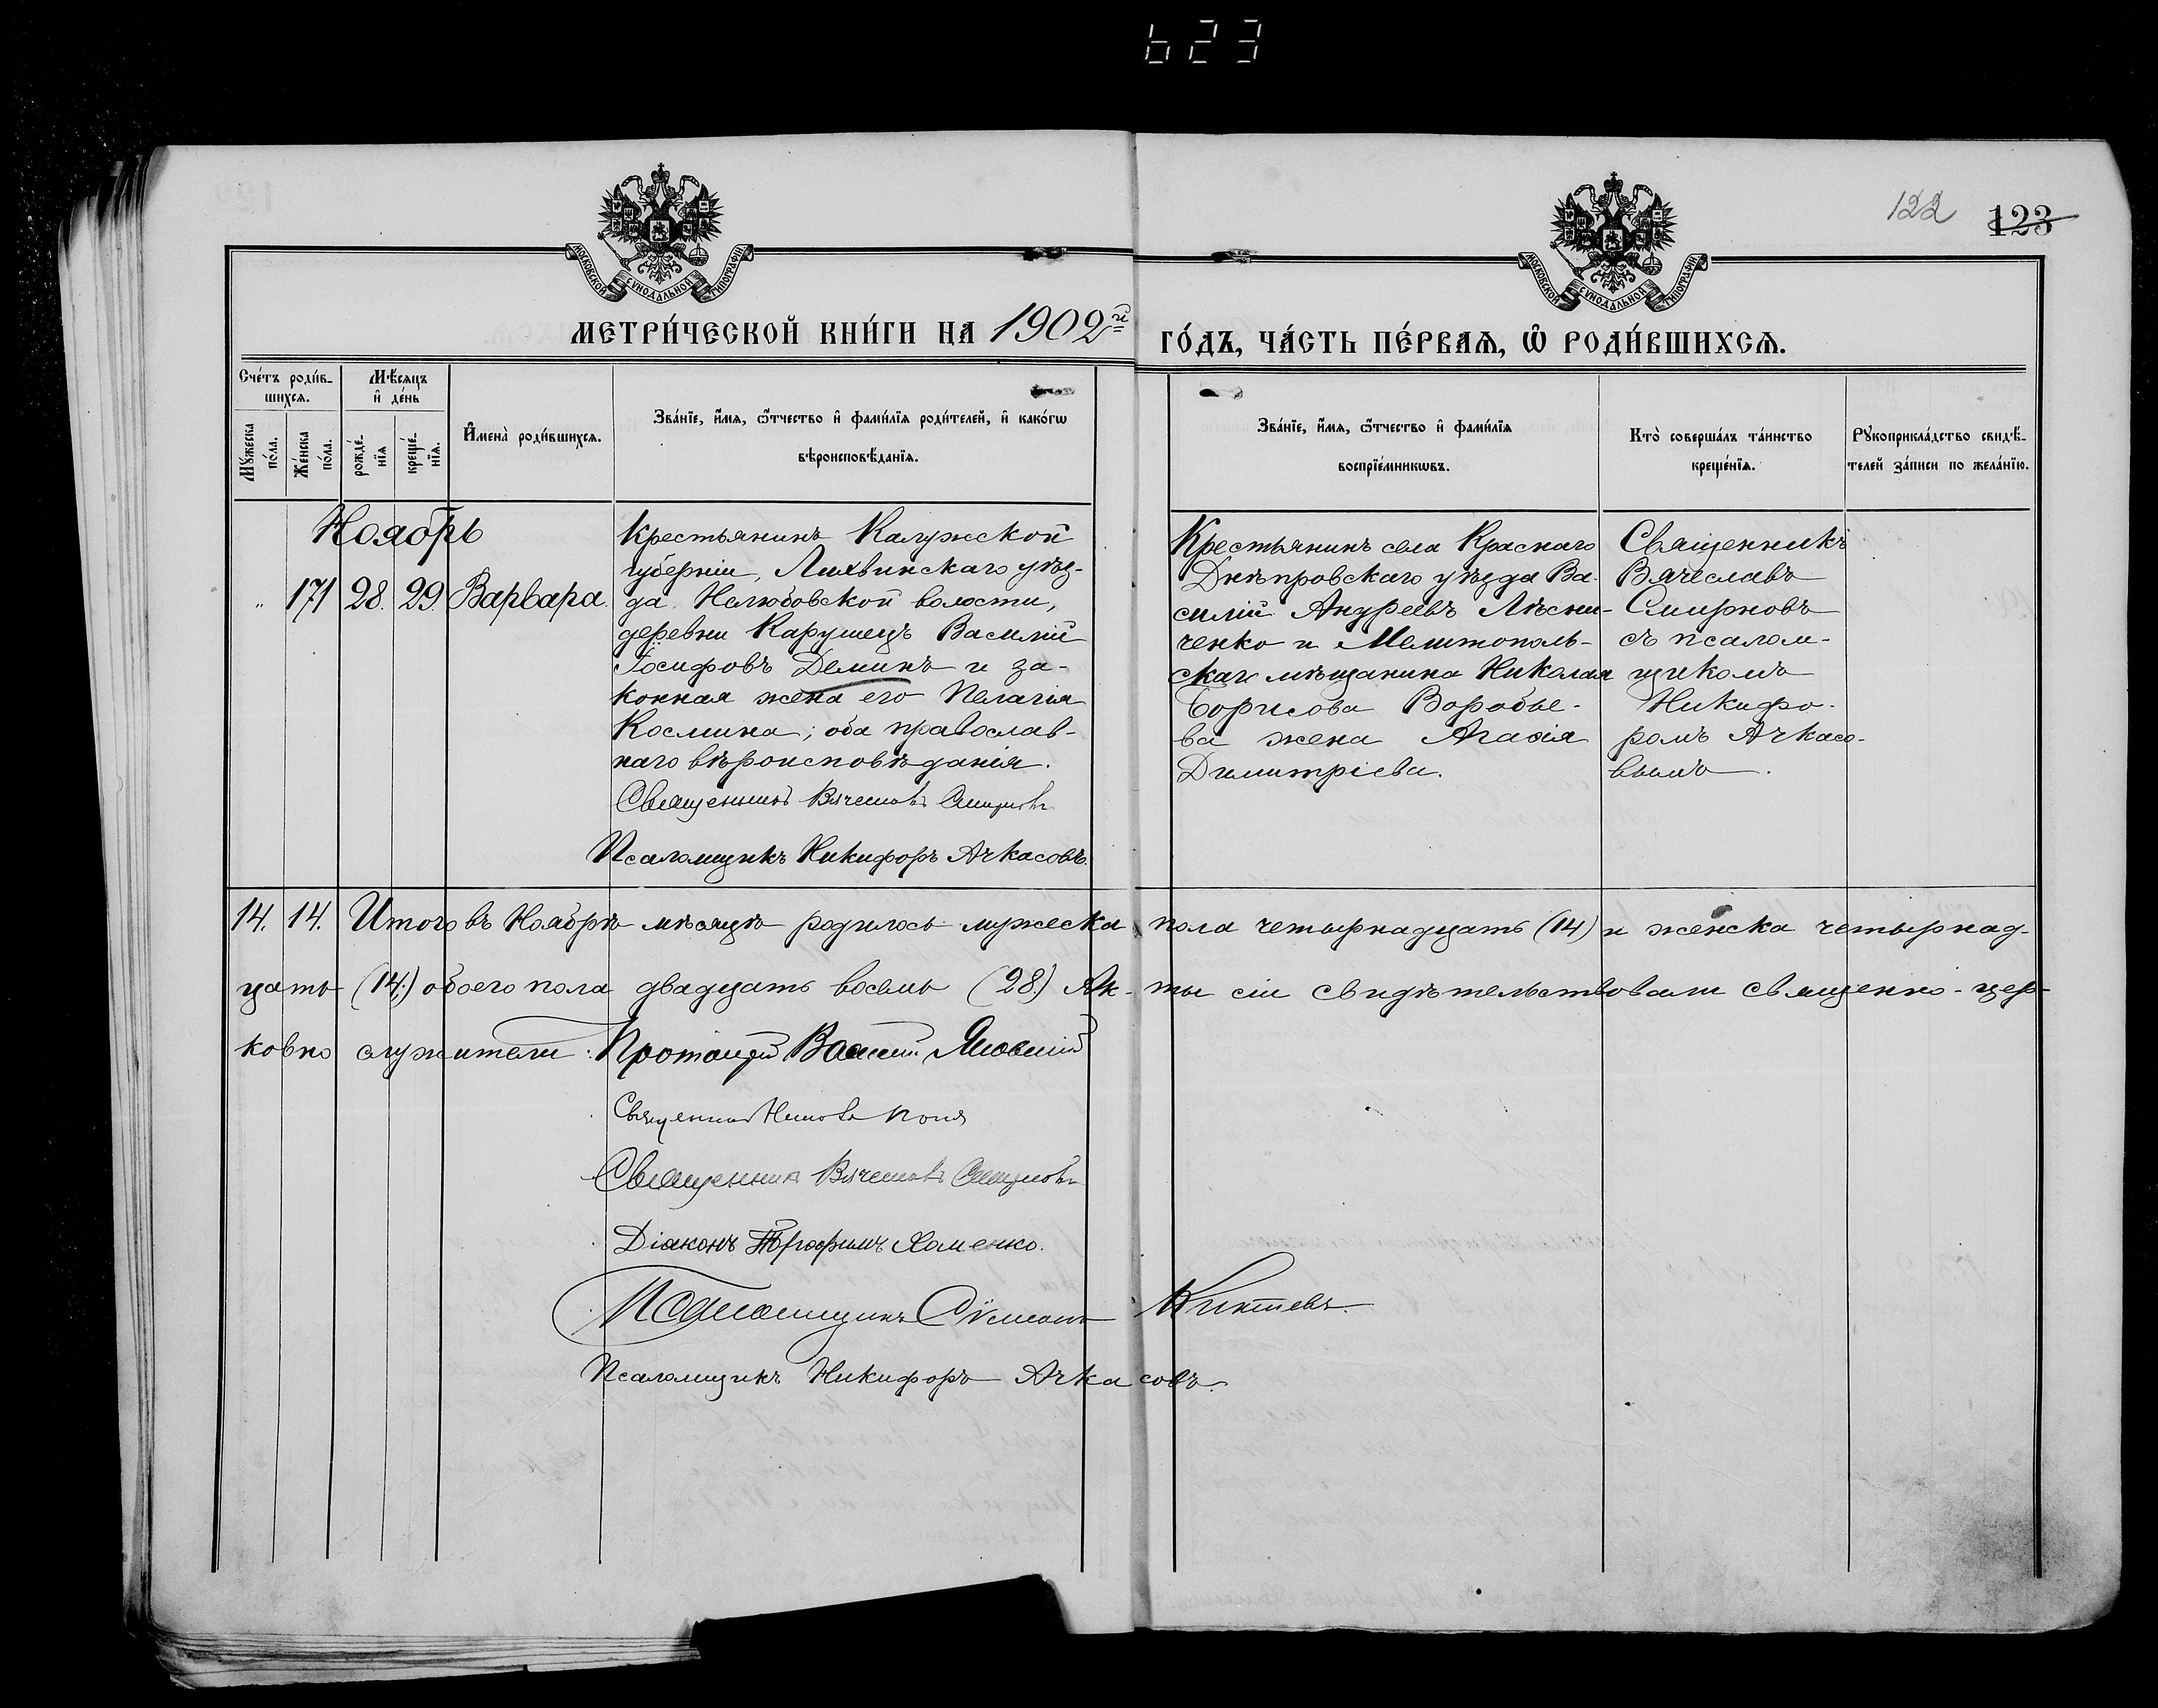 623
122 123
МОСКОВСКОЙ СѴНОДАЛЬНОЙ ТИПОГРАФІИ
МОСКОВСКОЙ СѴНОДАЛЬНОЙ ТИПОГРАФІИ
МЕТРИ́ЧЕСКОЙ КНИ́ГИ НА 1902й ГО́ДЪ, ЧА́СТЬ ПЕ́РВАѦ, Ѽ РОДИ́ВШИХСѦ.
Сче́тъ роди́в-
шихсѧ.
Мꙋ́жеска по́ла.
Же́нска по́ла.
Мѣ́сѧцъ
и҆ де́нь
рожде́-
нїѧ
креще́-
нїѧ.
И҆мена̀ роди́вшихсѧ.
Зва́нїе, и҆́мѧ, ѻ҆́тчество и҆ фами́лїѧ роди́телей, и҆ како́гѡ
вѣроисповѣ́данїѧ.
Зва́нїе, и҆́мѧ, ѻ҆́тчество и҆ фами́лїѧ
воспрїе́мникѡвъ.
Кто̀ соверша́лъ та́инство
креще́нїѧ.
Рꙋкоприкла́дство свидѣ́-
телей за́писи по жела́нїю.
Ноябрь
" 171 28. 29. Варвара.
Крестьянинъ Калужской
губерніи, Лихвинскаго уѣз-
да Нелюбовской волости,
деревни Карушецъ Василій
Іосифовъ Деминъ и за-
конная жена его Пелагія
Космина; оба православ-
наго вѣроисповѣданія.
Священникъ Вячеславъ Смирновъ
Псаломщикъ Никифоръ Ачкасовъ.
Крестьянинъ села Краснаго
Днѣпровскаго уѣзда Ва-
силій Андреевъ Лѣсни-
ченко и Мелитополь-
скаго мѣщанина Николая
Борисова Воробье-
ва жена Агафія
Димитріева.
Священникъ
Вячеславъ
Смирновъ
съ псалом-
щикомъ
Никифо-
ромъ Ачкасо-
вымъ.
14. 14. Итого въ Ноябрѣ мѣсяцѣ родилось мужеска пола четырнадцать (14) и женска четырнад-
цать (14;) обоего пола двадцать восемь (28.) Ак-ты сіи свидѣтельствовали священно-цер-
ковно служители: Протоіерей Василій
Священникъ
Священникъ Вячеславъ Смирновъ
Діаконъ Трофимъ Хоменко.
Псаломщикъ
Псаломщикъ Никифоръ Ачкасовъ.